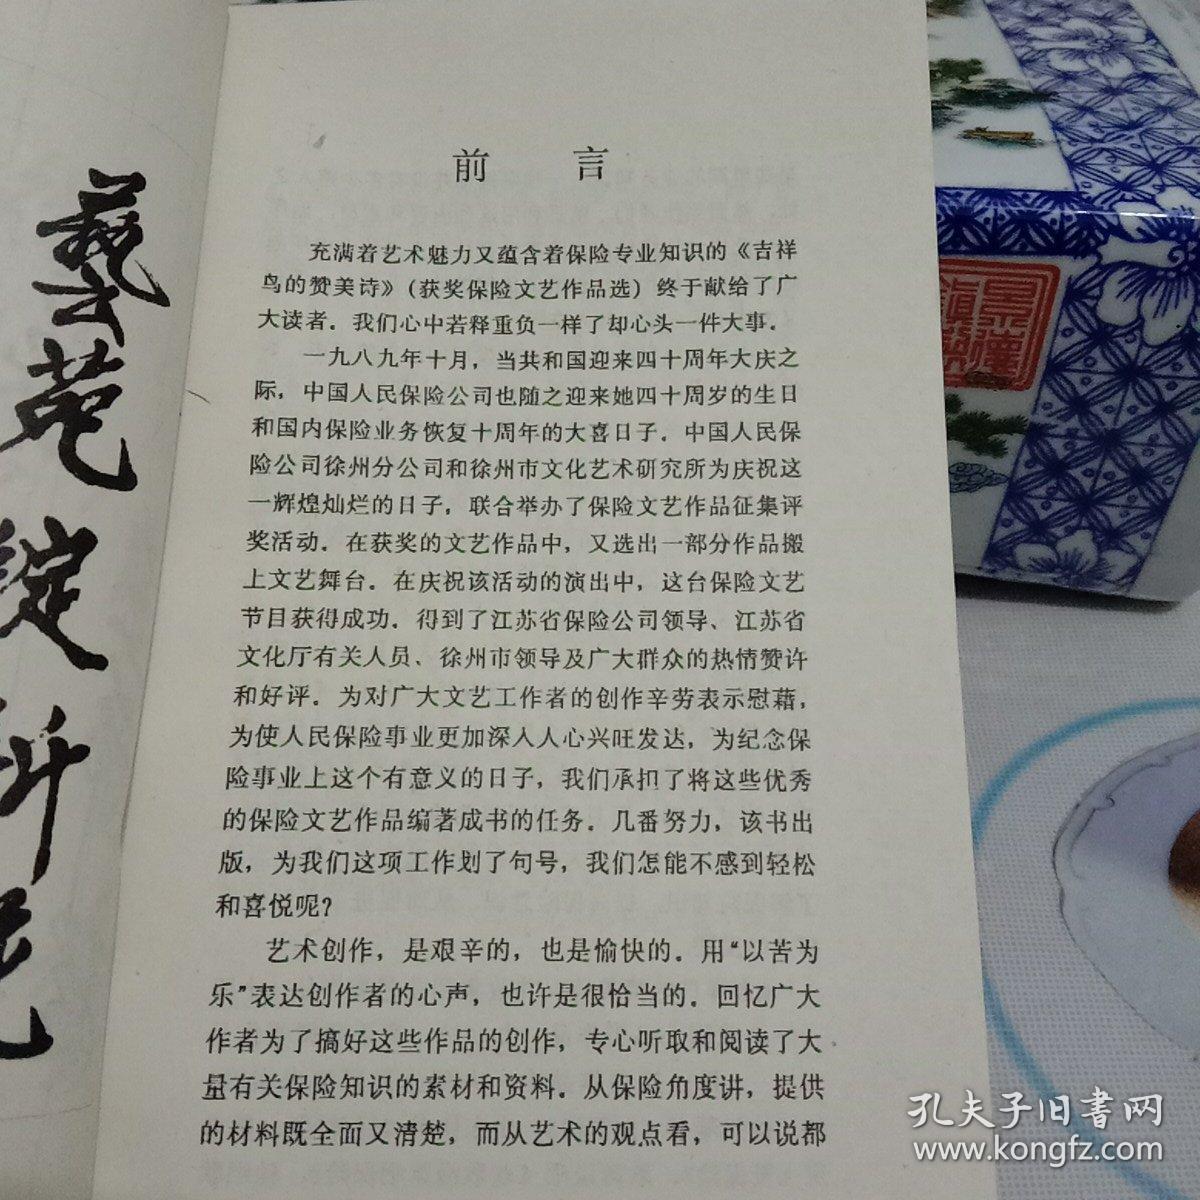 前言
充满着艺术魅力又蕴含着保险专业知识的《吉祥
鸟的赞美诗》(获奖保险文艺作品选)终于献给了广
大读者。我们心中若释重负一样了却心头一件大事。
一九八九年十月，当共和国迎来四十周年大庆之
际，中国人民保险公司也随之迎来她四十周岁的生日
和国内保险业务恢复十周年的大喜日子。中国人民保
险公司徐州分公司和徐州市文化艺术研究所为庆祝这
一辉煌灿烂的日子，联合举办了保险文艺作品征集评
奖活动。在获奖的文艺作品中，又选出一部分作品搬
上文艺舞台。在庆祝该活动的演出中，这台保险文艺
节目获得成功。得到了江苏省保险公司领导、江苏省
文化厅有关人员、徐州市领导及广大群众的热情赞许
和好评。为对广大文艺工作者的创作辛劳表示慰藉，
为使人民保险事业更加深入人心兴旺发达，为纪念保
险事业上这个有意义的日子，我们承担了将这些优秀
的保险文艺作品编著成书的任务。几番努力，该书出
版，为我们这项工作划了句号，我们怎能不感到轻松
和喜悦呢？
艺术创作，是艰辛的，也是愉快的。用“以苦为
乐”表达创作者的心声，也许是很恰当的。回忆广大
作者为了搞好这些作品的创作，专心听取和阅读了大
量有关保险知识的素材和资料。从保险角度讲，提供
的材料既全面又清楚，而从艺术的观点看，可以说都
藝苑
孔夫子旧书网
www.kongfz.com